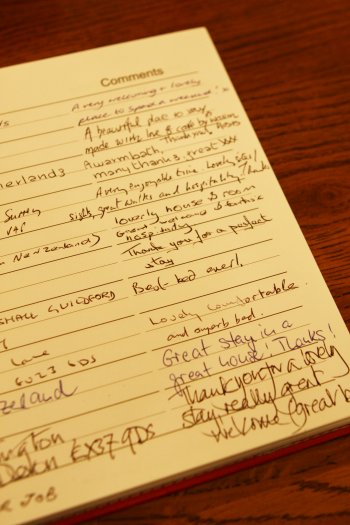 Comments
A very welcoming + lovely
place to spend a weekend's
A beautiful place to stay,
made with love & care by
Thank you
A warm bath, great xxx
herland3 many thanks,
A very enjoyable time. Lovely
Surrey sights, great walks and hospitality. Thanks.
lovely house & room
n New Zealand) Great welcome &
hospitality
Thank you for a perfect
stay
SHALL GUILDFORD Best bed ever!
Lovely comfortable
Lane and superb bed.
GU23 6DS Great stay in a
Zealand great house. Thanks!
Thank you for a lovely
ington stay really great
Devon EX37 9DS Welcome (great
R JOB